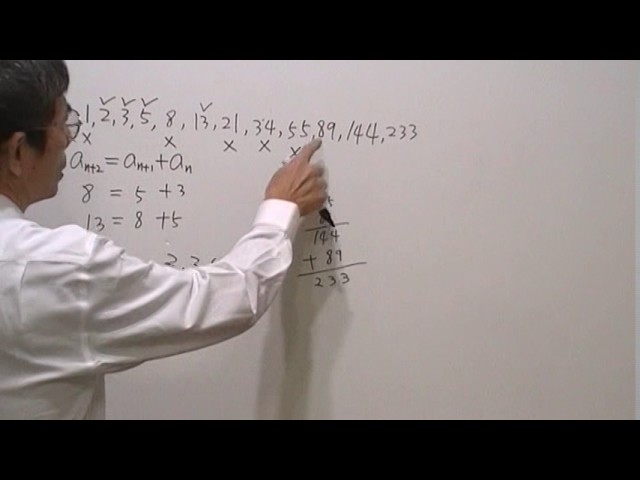 1, 2, 3, 5, 8, 13, 21, 34, 55, 89, 144, 233
aₙ₊₂ = aₙ₊₁ + aₙ
8 = 5 + 3
13 = 8 + 5
2, 3,
144
+ 89
233